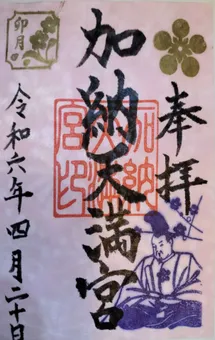 奉拝
加納天満宮
加納天満宮印
卯月
令和六年四月二十日